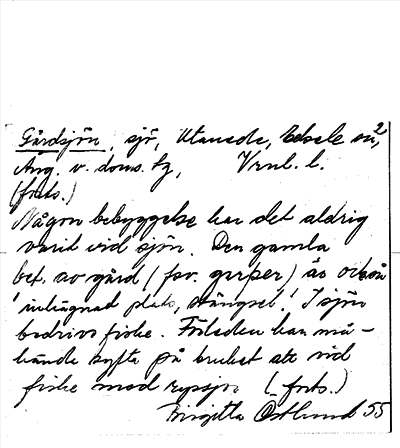 Gårdsjön, sjö, Utanede, Edsele sn2,
Ång. v. doms. tg, Vrnl. l.
(forts.)
Någon bebyggelse har det aldrig
varit vid sjön. Den gamla
bet. av gård (fsv. garþer) är också
'inhägnad plats, stängsel'. I sjön
bedrivs fiske. Förleden kan må-
hända syfta på bruket att vid
fiske med ryssjor (forts.)
Birgitta Östlund 55